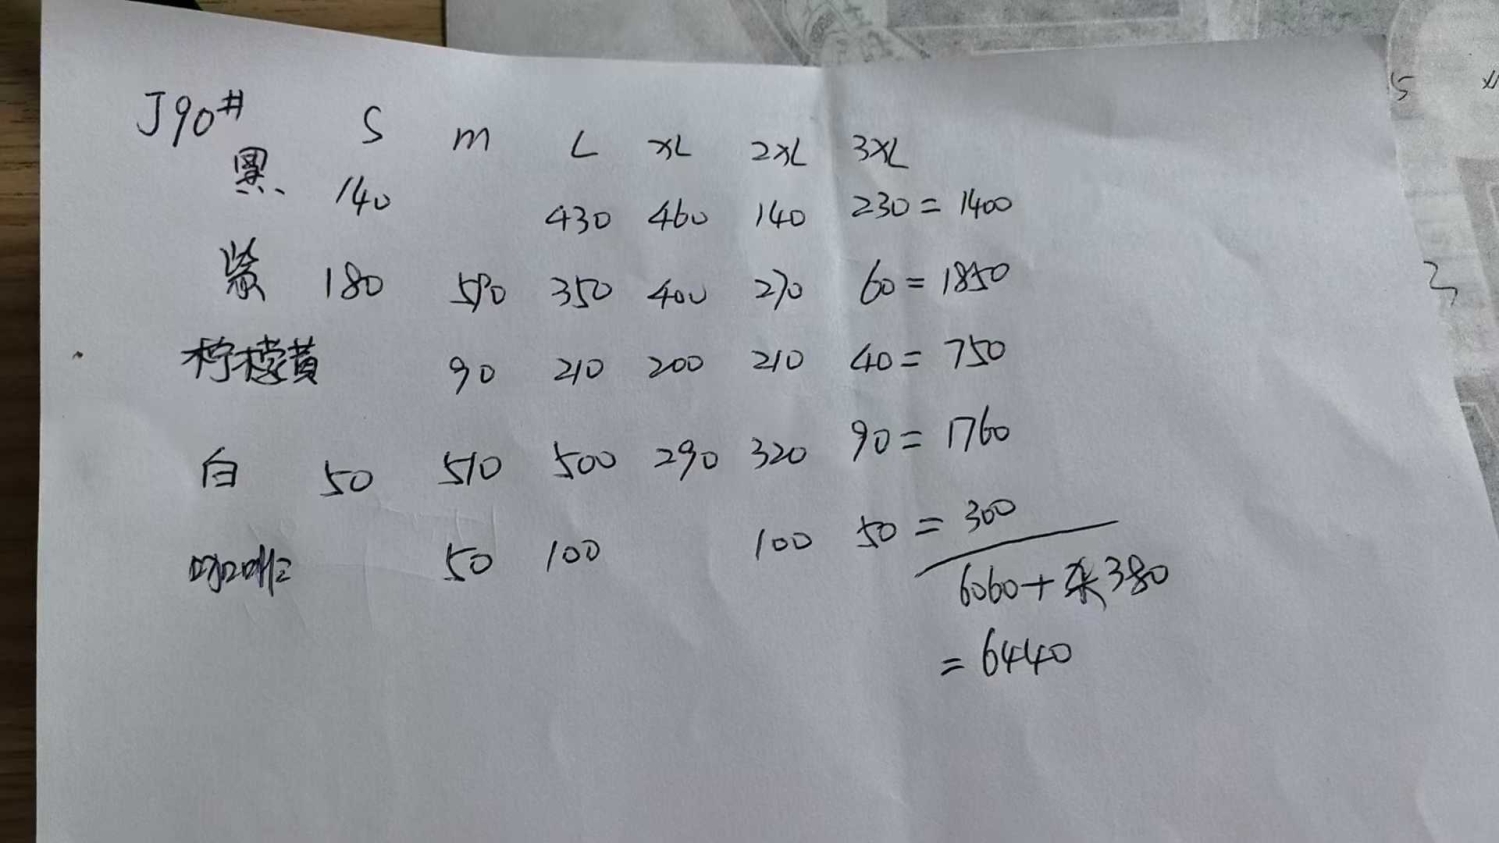 J90#
S M L XL 2XL 3XL
黑、 140 430 460 140 230 = 1400
紫 180 590 350 400 270 60 = 1850
柠檬黄 90 210 200 210 40 = 750
白 50 510 500 290 320 90 = 1760
咖啡 50 100 100 50 = 300
6060 + 杂380
= 6440